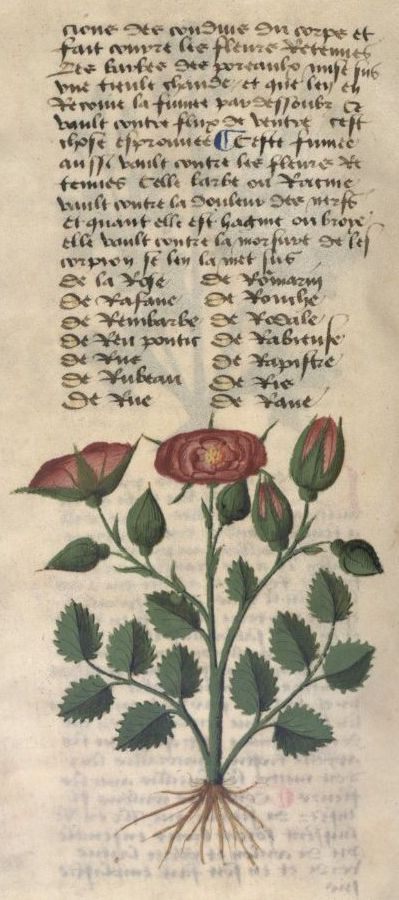 cions des conduis du corps et
fait contre les fleurs Retenues
Les barbes des poreaulx mise sus
vne tieule chaude et que len en
Recoiue la fumee par dessoubz Ce
vault contre flux de ventre cest
chose esprouuee ¶ Ceste fumee
aussi vault contre les fleurs Re
tenues Celle larbe ou Racine
vault contre la douleur des nerfs
Et quant elle est hachie ou broye
elle vault contre la morsure de les
corpion se len la met sus
De la Rose De Romarin
De Rafane De Ronche
De Reubarbe De Rodale
De Reu pontic De Rabieuse
De Rue De Rapistre
De Rubeau De Ris
De Rue De Raue